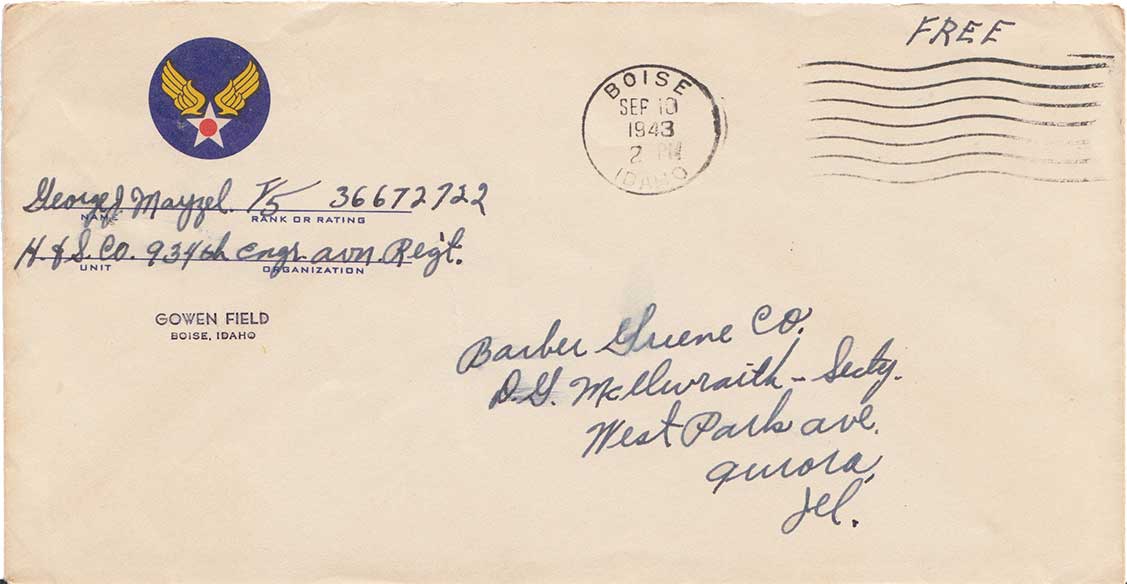 FREE
BOISE
SEP 10
1943
2 PM
IDAHO
George J Mayzel. T/5 36672722
NAME RANK OR RATING
H. & S. Co. 934th Engr. avn. Reg't.
UNIT ORGANIZATION
GOWEN FIELD
BOISE, IDAHO
Barber Greene Co.
D.G. McIlwraith - Secty.
West Park ave.
aurora,
Ill.